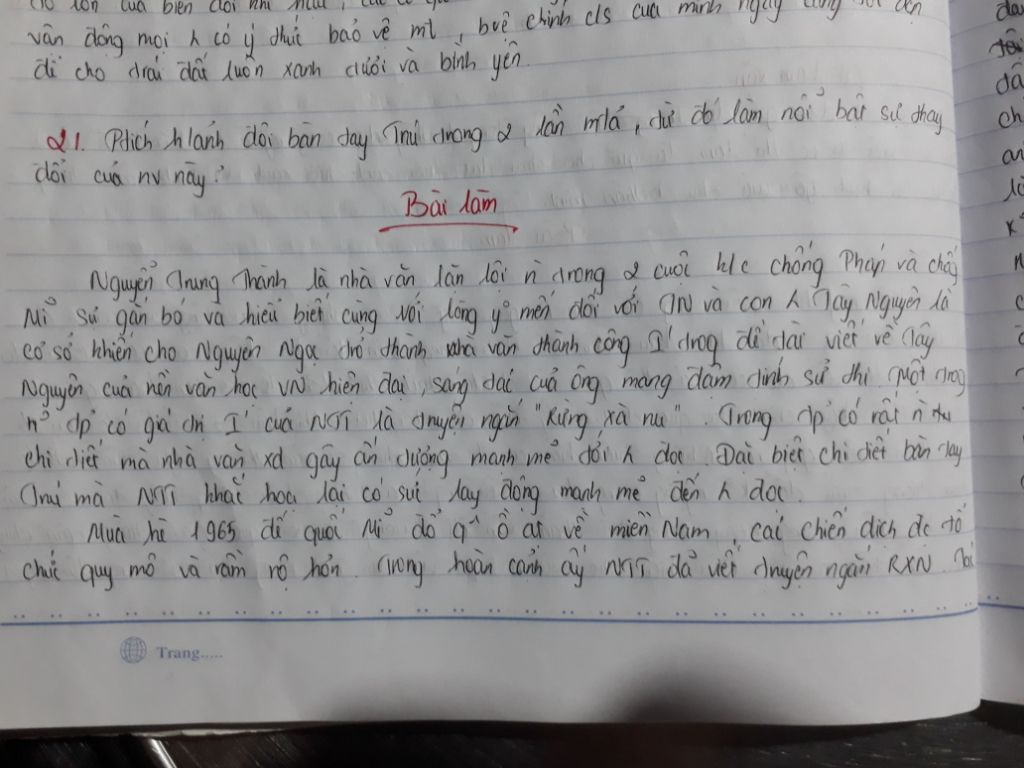 của biến đổi khí hậu,
vận động mọi h có ý thức bảo vệ mt, bvệ chính c/s của mình ngay
để cho trái đất luôn xanh tươi và bình yên.
21. Ptích h/ảnh đôi bàn tay Tnú trong 2 lần mtả, từ đó làm nổi bật sự thay
đổi của nv này?
Bài làm
Nguyễn Trung Thành là nhà văn lăn lội n trong 2 cuộc k/c chống Pháp và chống
Mĩ sự gắn bó và hiểu biết cùng với lòng y mến đối với TN và con h Tây Nguyên là
cơ sở khiến cho Nguyên Ngọc trở thành nhà văn thành công I' trog đề tài viết về Tây
Nguyên của nền văn học VN hiện đại, sáng tác của ông mang đậm tính sử thi. Một trog
n~ tp có giá trị I' của NTT là truyện ngắn "Rừng xà nu". Trong tp có rất n
chi tiết mà nhà văn xd gây ấn tượng mạnh mẽ tới h đọc. Đặc biệt chi tiết bàn tay
Tnú mà NTT khắc họa lại có sức lay động mạnh mẽ đến h đọc.
Mùa hè 1965 đế quốc Mĩ đổ q' ồ ạt về miền Nam, các chiến dịch đc tổ
chức quy mô và rầm rộ hơn. Trong hoàn cảnh ấy NTT đã viết truyện ngắn RXN
Trang.....